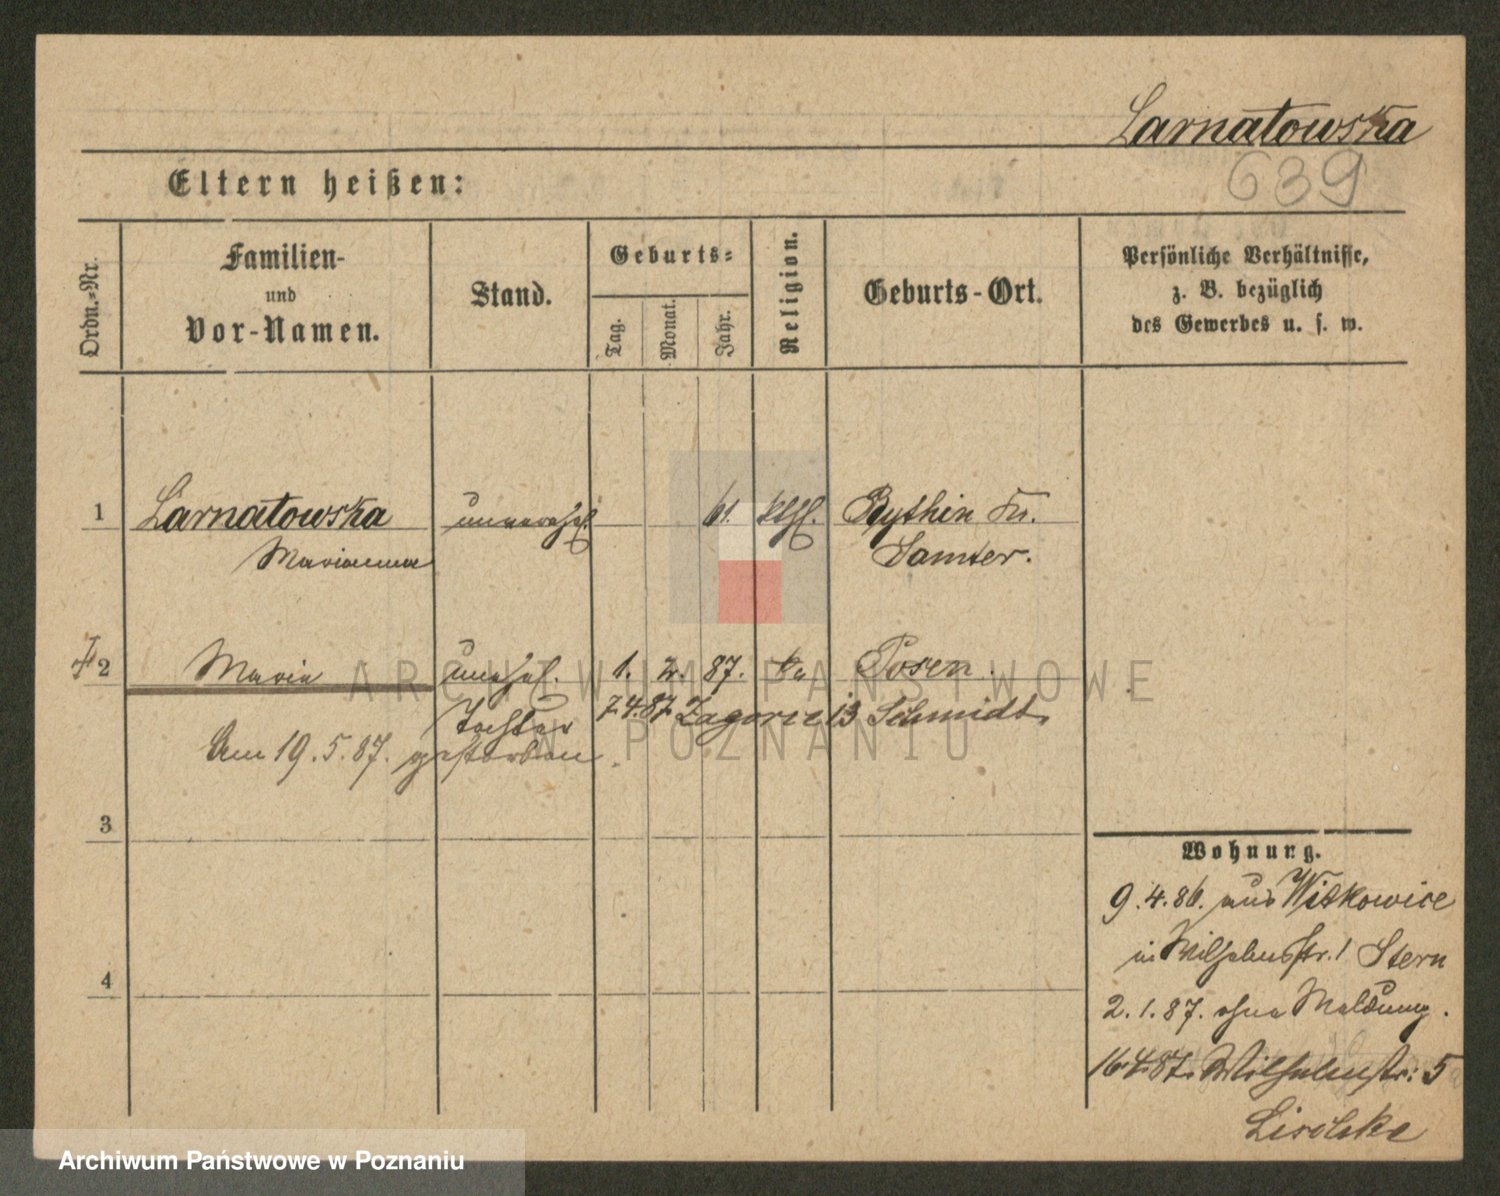 Larnatowska
639
Eltern heißen:
Ordn.-Nr.
Familien-
und
Vor-Namen.
Stand.
Geburts-
Tag.
Monat.
Jahr.
Religion.
Geburts-Ort.
Persönliche Verhältnisse,
z. B. bezüglich
des Gewerbes u. s. w.
1 Larnatowska unverehel. 61. kthl. Bythin Kr.
Marianna Samter.
2 Maria unehel. 1. 87. Posen.
Tochter 7.4.87 Zagorze 13 Schmidt
Am 19.5.87. gestorben.
3
4
Wohnung.
9.4.86. aus Witkowice
in Wilhelmsstr. 1 Stern
2.1.87. ohne Meldung.
16.4.87. Wilhelmstr: 5
ARCHIWUM PAŃSTWOWE
W POZNANIU
Archiwum Państwowe w Poznaniu